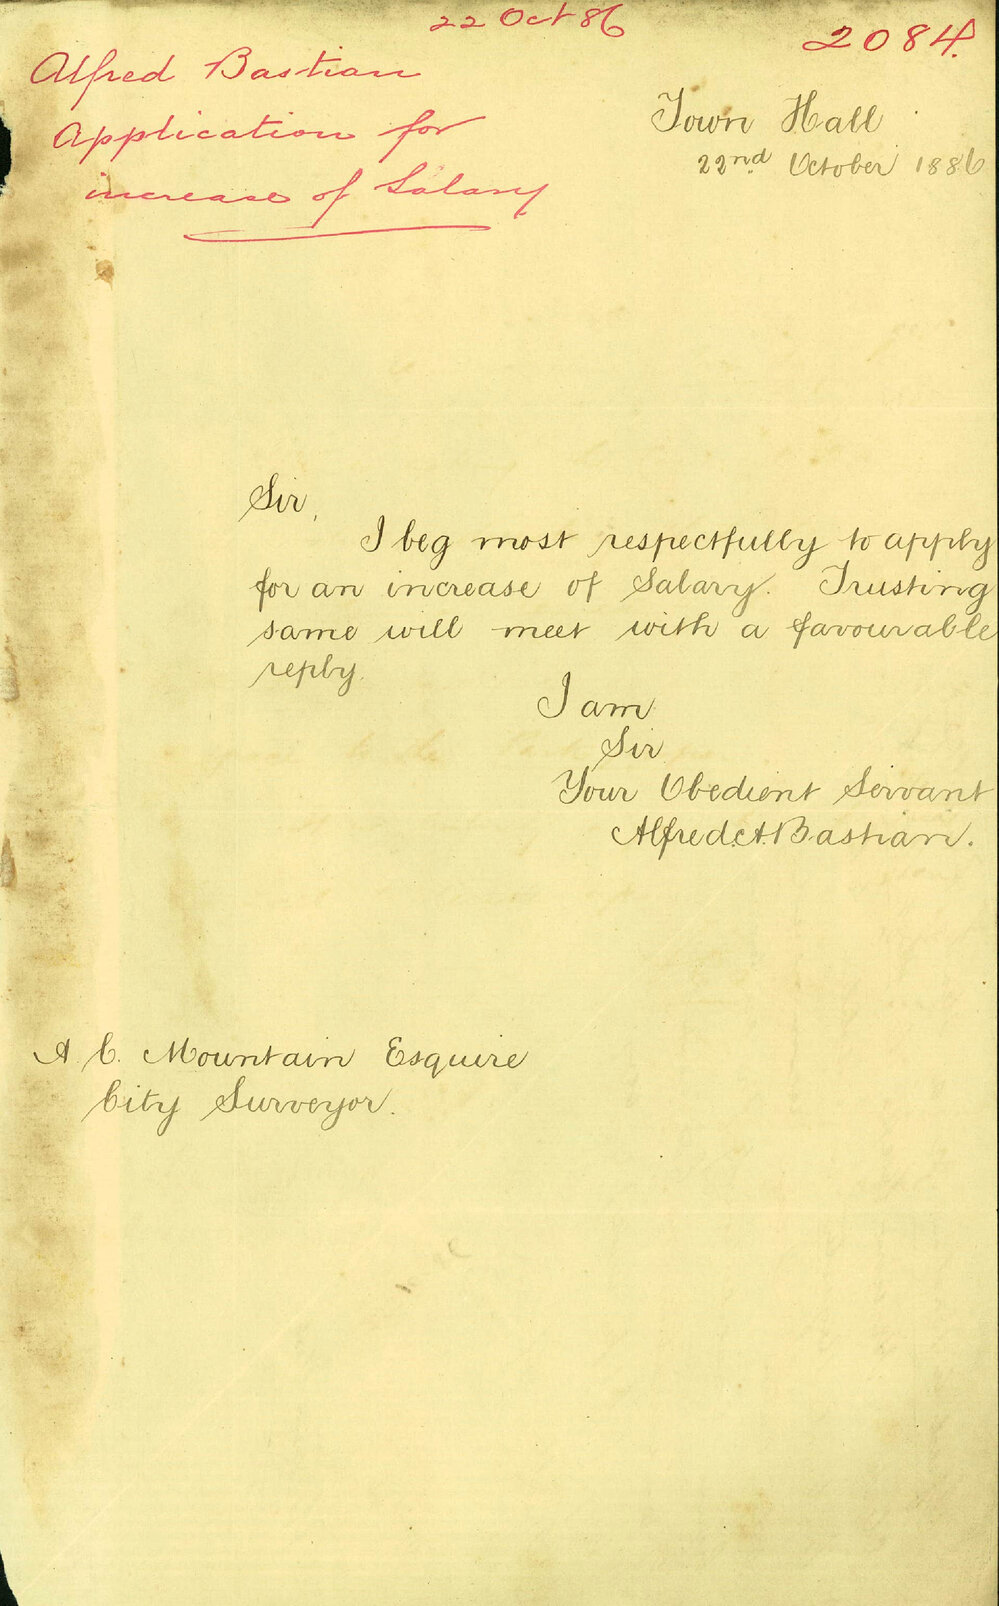 22 Oct 86
2084.
Alfred Bastian
Application for
increase of Salary
Town Hall
22nd October 1886
Sir,
I beg most respectfully to apply
for an increase of Salary. Trusting
same will meet with a favourable
reply.
I am
Sir
Your Obedient Servant
Alfred A. Bastian.
A. C. Mountain Esquire
City Surveyor.